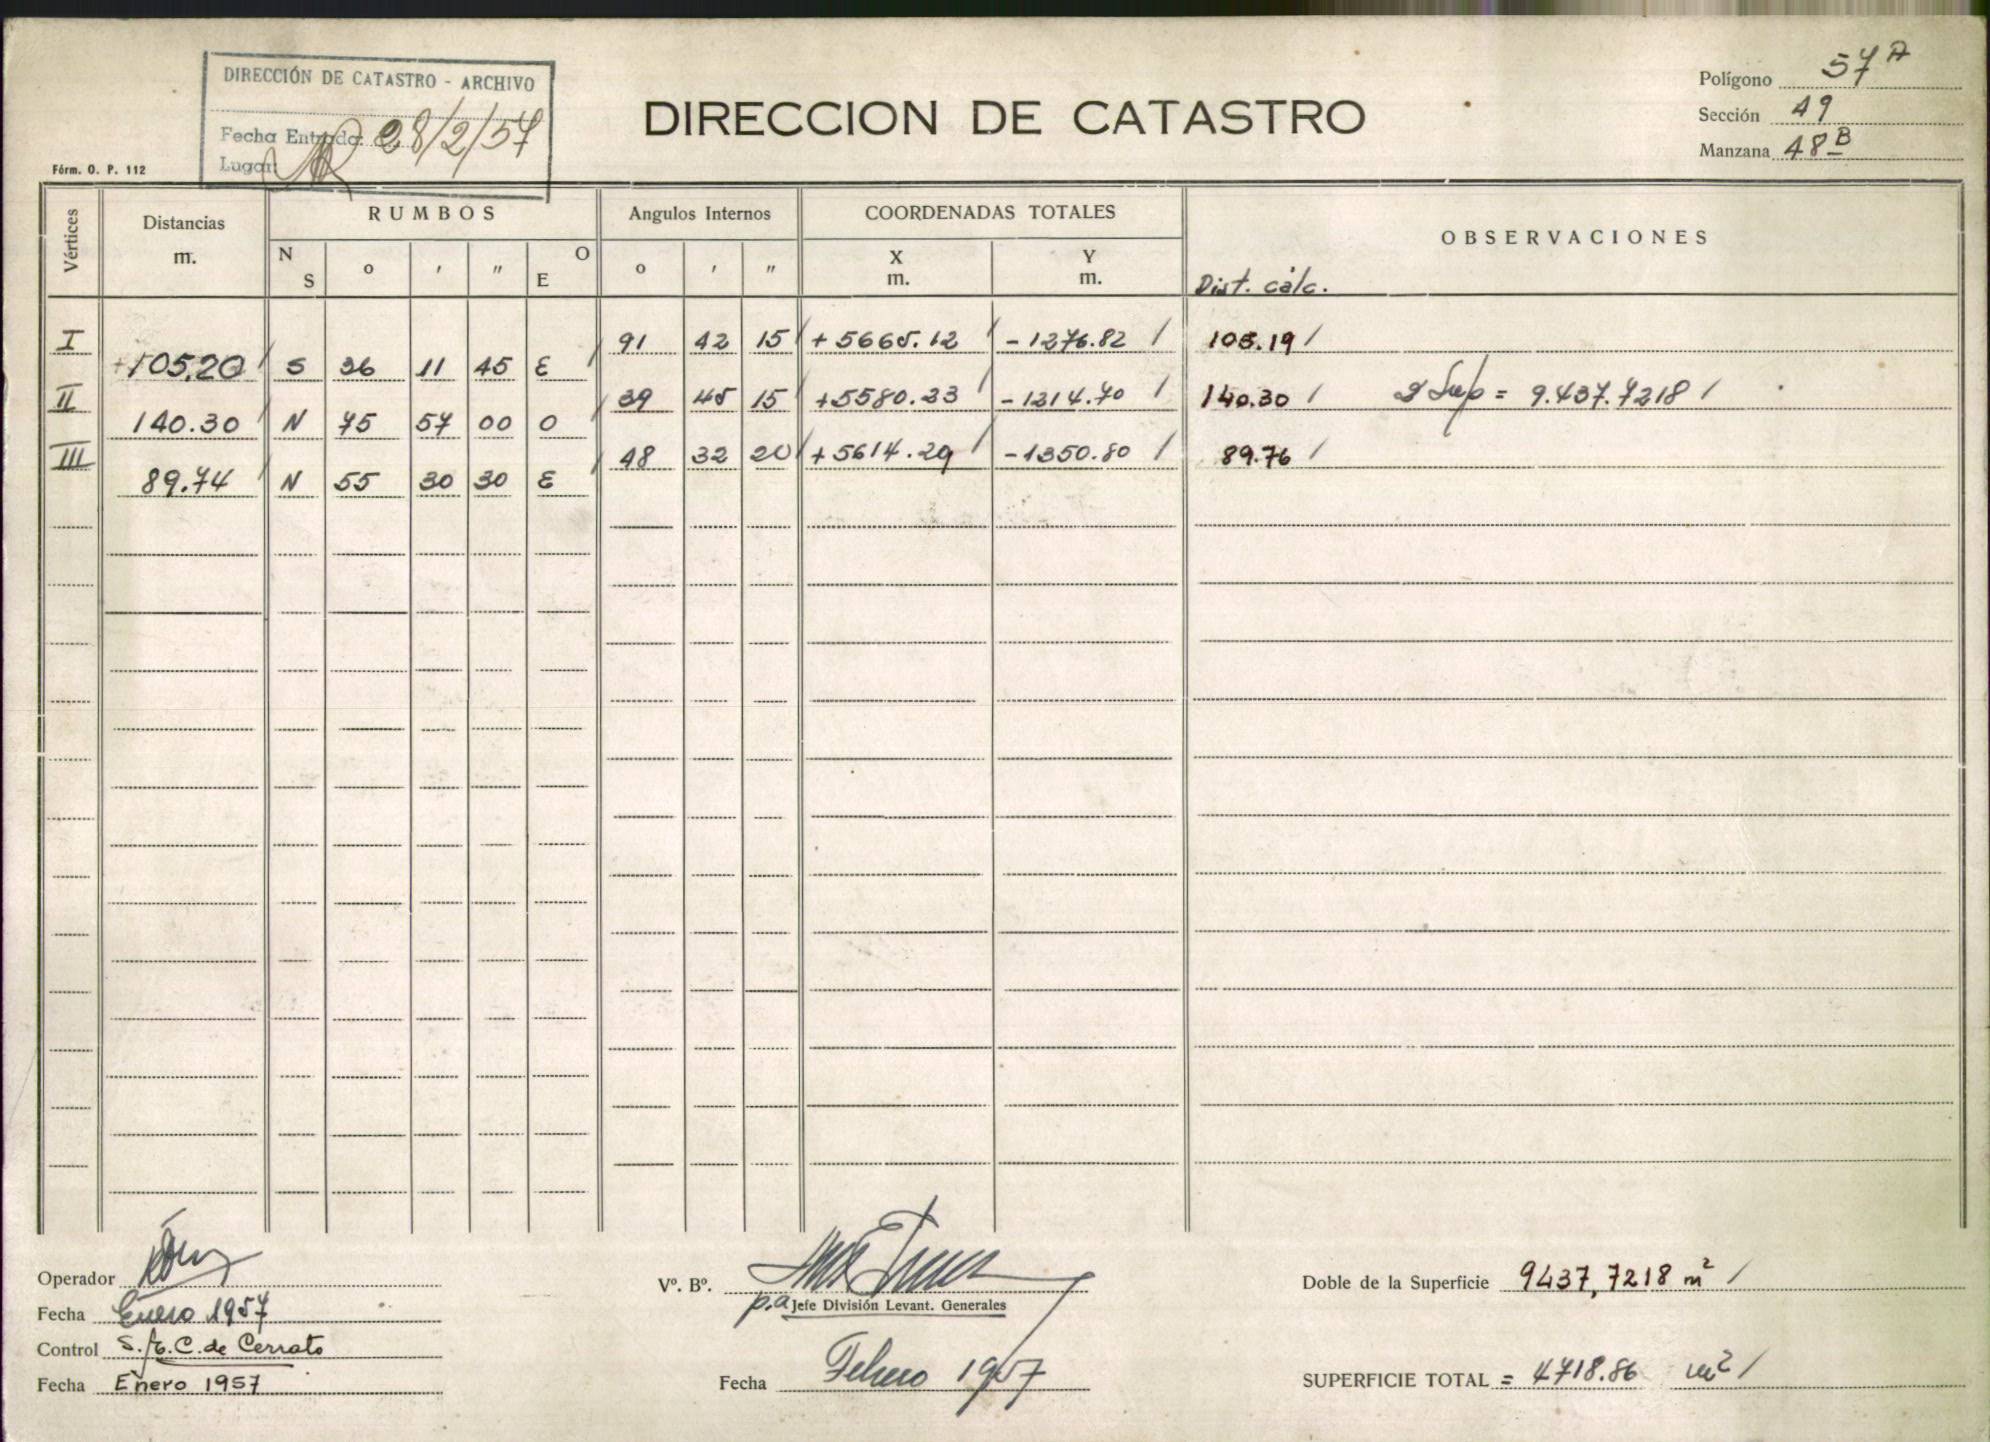 DIRECCIÓN DE CATASTRO - ARCHIVO
Fecha Entrada: 28/2/57
Lugar:
DIRECCION DE CATASTRO
Polígono 57 A
Sección 49
Manzana 48 B
Fórm. O. P. 112
Vértices Distancias m. RUMBOS Angulos Internos COORDENADAS TOTALES OBSERVACIONES
N S o ' " E O o ' " X m. Y m. Dist. cálc.
I 91 42 15 + 5665.12 - 1276.82 105.19
105.20 S 36 11 45 E
II 39 45 15 + 5580.23 - 1214.70 140.30 2 Sup = 9.437.7218
140.30 N 75 57 00 O
III 48 32 30 + 5614.29 - 1350.80 89.76
89.74 N 55 30 30 E
Operador
Fecha Enero 1957
Control S. C. de Cerrato
Fecha Enero 1957
Vº. Bº.
p.a Jefe División Levant. Generales
Fecha Febrero 1957
Doble de la Superficie 9437,7218 m²
SUPERFICIE TOTAL = 4718.86 m²